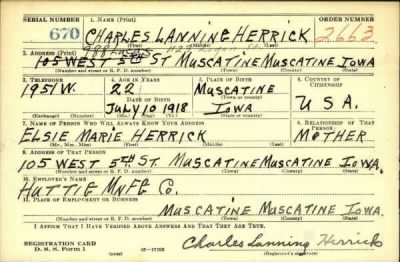 SERIAL NUMBER 1. NAME (Print) ORDER NUMBER
670 CHARLES LANNING HERRICK 2663
(First) (Middle) (Last)
2. ADDRESS (Print)
105 WEST 5th ST MUSCATINE MUSCATINE IOWA
(Number and street or R. F. D. number) (Town) (County) (State)
3. TELEPHONE 4. AGE IN YEARS 5. PLACE OF BIRTH 6. COUNTRY OF CITIZENSHIP
1951W. 22 MUSCATINE
DATE OF BIRTH
JULY 10 1918 IOWA U.S.A.
(Exchange) (Number) (Mo.) (Day) (Yr.) (State or country)
7. NAME OF PERSON WHO WILL ALWAYS KNOW YOUR ADDRESS 8. RELATIONSHIP OF THAT PERSON
ELSIE MARIE HERRICK MOTHER
(Mr., Mrs., Miss) (First) (Middle) (Last)
9. ADDRESS OF THAT PERSON
105 WEST 5th ST. MUSCATINE MUSCATINE IOWA.
(Number and street or R. F. D. number) (Town) (County) (State)
10. EMPLOYER'S NAME
HUTTIG MNFG CO.
11. PLACE OF EMPLOYMENT OR BUSINESS
MUSCATINE MUSCATINE IOWA.
(Number and street or R. F. D. number) (Town) (County) (State)
I AFFIRM THAT I HAVE VERIFIED ABOVE ANSWERS AND THAT THEY ARE TRUE.
REGISTRATION CARD Charles Lanning Herrick
D. S. S. Form 1 (over) (Registrant's signature)